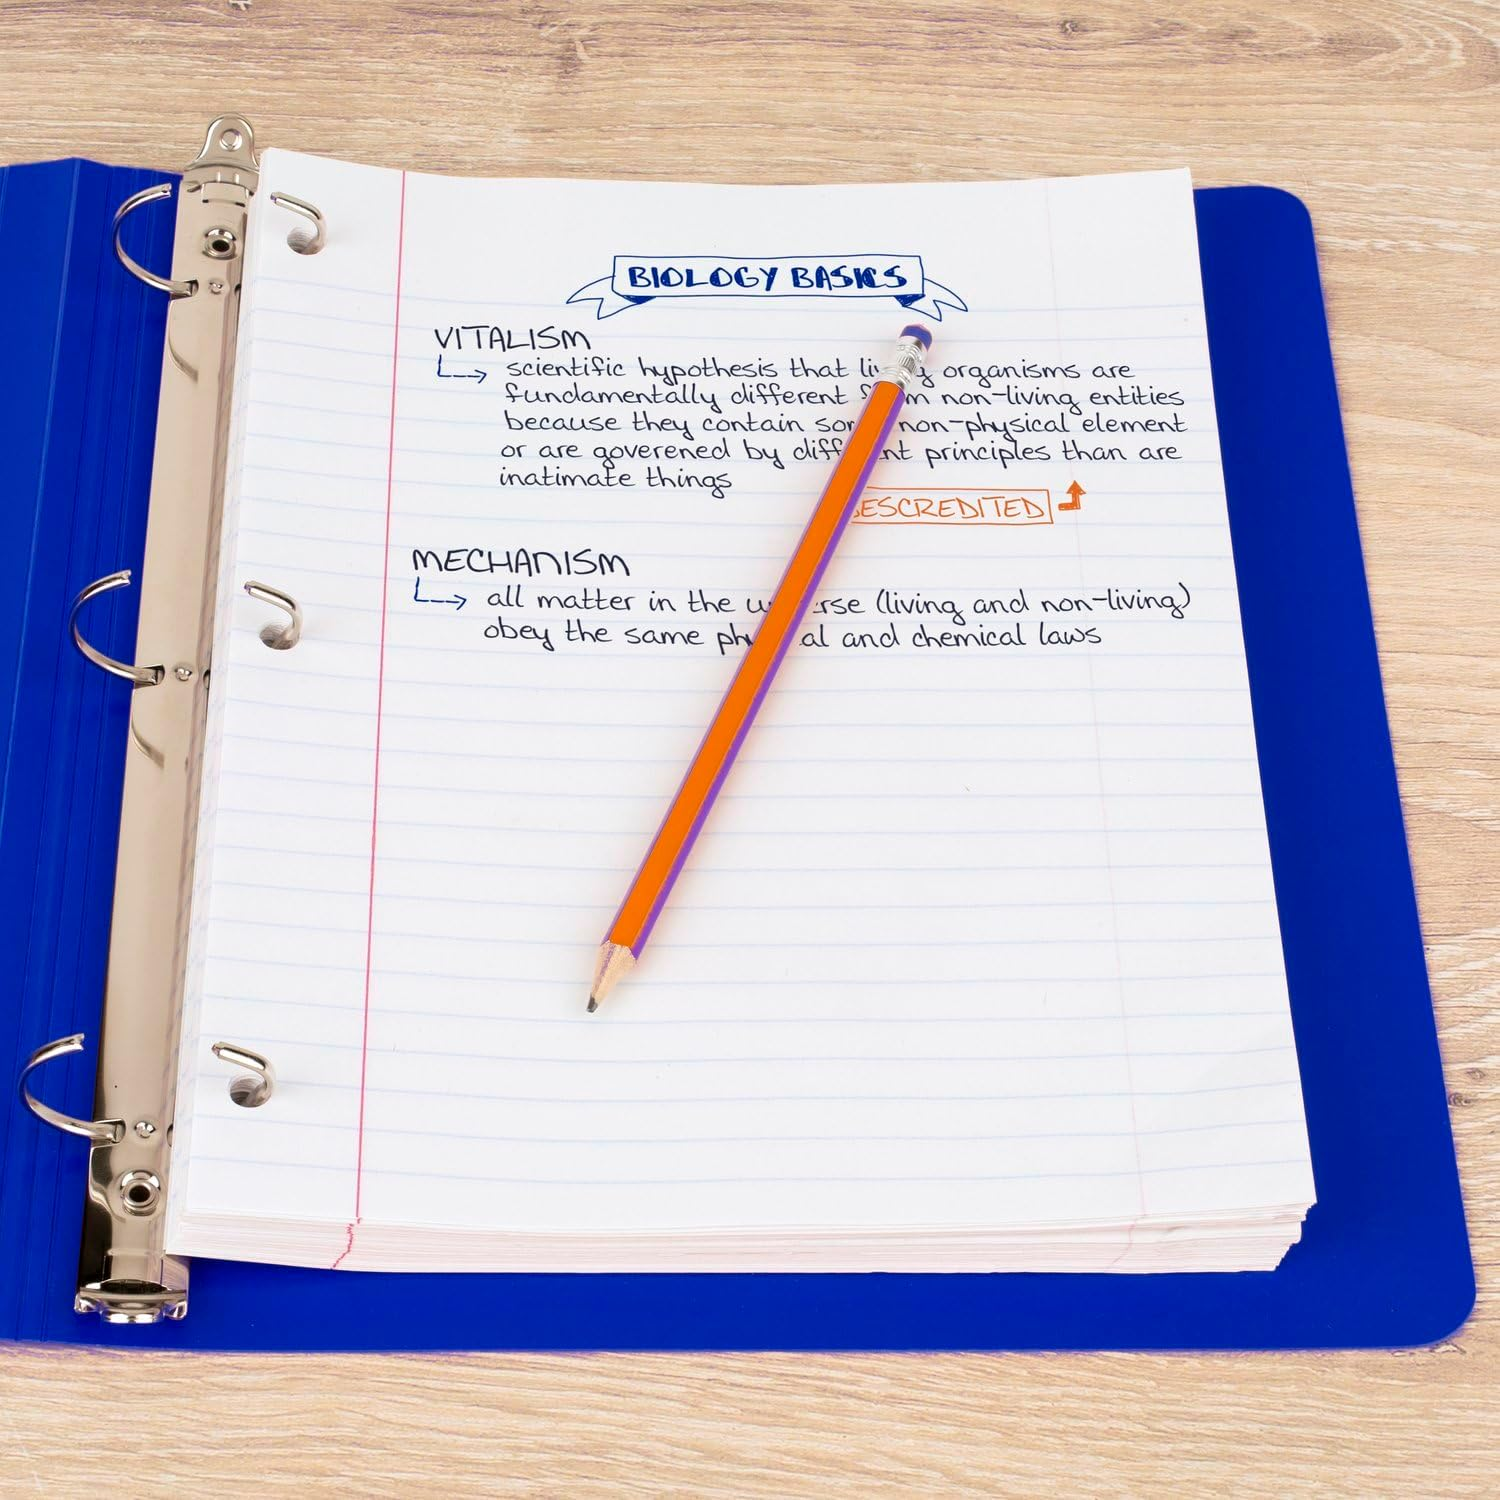 BIOLOGY BASICS
VITALISM
scientific hypothesis that organisms are
fundamentally different non-living entities
because they contain non-physical element
or are goverened by principles than are
inatimate things
MECHANISM
all matter in the (living and non-living)
obey the same and chemical laws